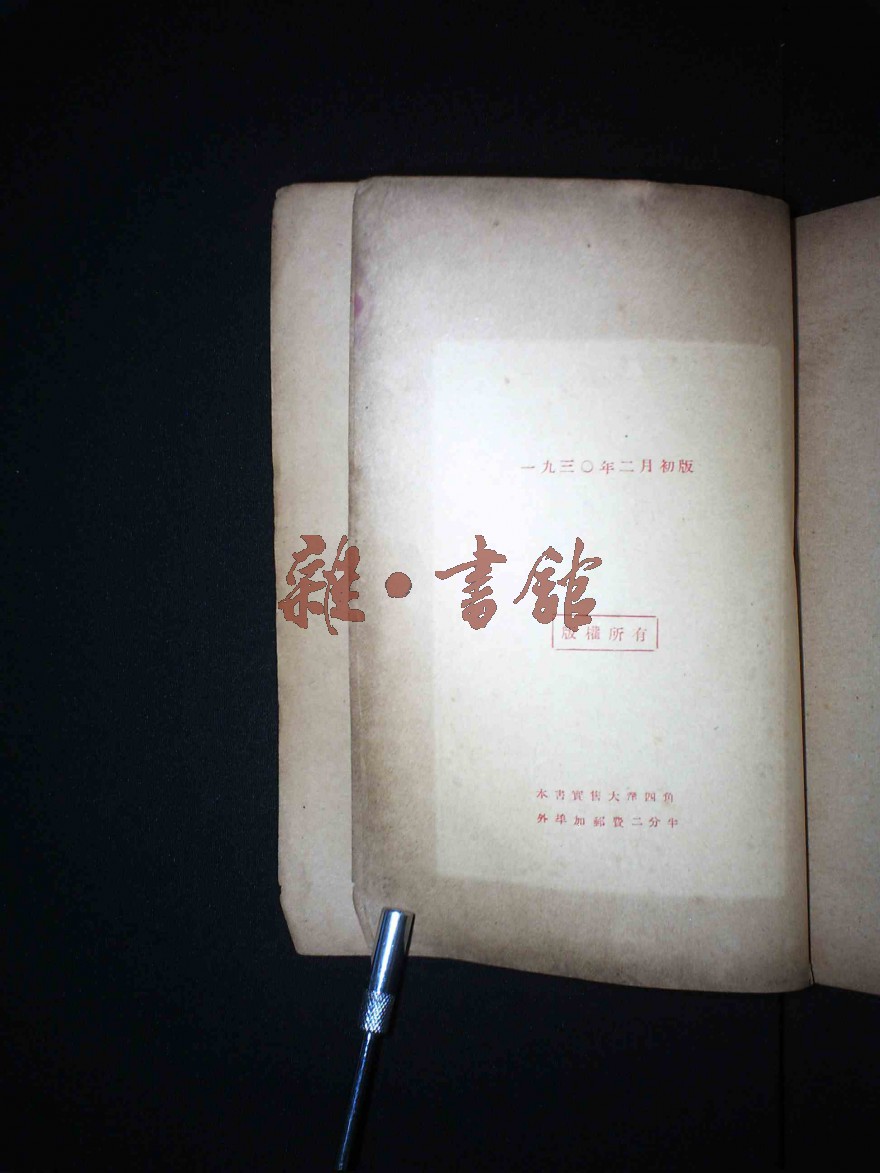 一九三〇年二月初版
雜·書館
版權所有
本書實售大洋四角
外埠加郵費二分半